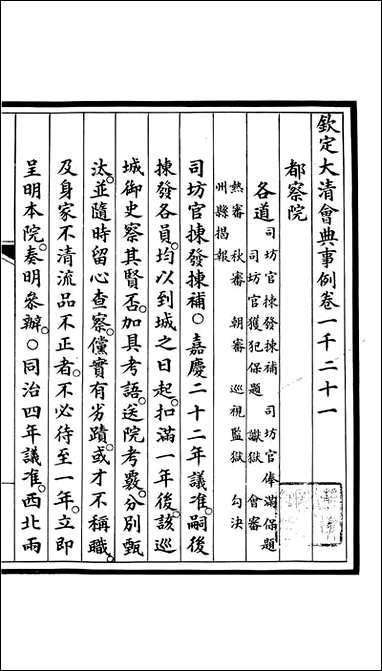 欽定大清會典事例卷一千二十一
都察院
各道
司坊官揀發揀補 司坊官俸滿保題
司坊官獲犯保題 讞獄 會審
熱審 秋審 朝審 巡視監獄 勾決
州縣揭報
司坊官揀發揀補○嘉慶二十二年議准嗣後
揀發各員均以到城之日起扣滿一年後該巡
城御史察其賢否加具考語送院考覈分別甄
汰並隨時留心查察儻實有劣蹟或才不稱職
及身家不清流品不正者不必待至一年立即
呈明本院奏明參辦○同治四年議准西北兩